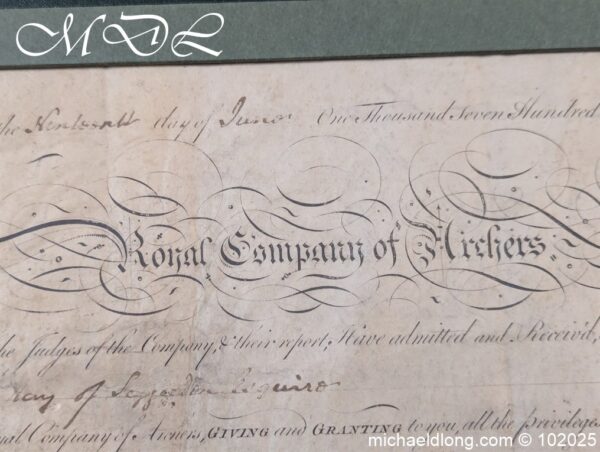 MDL
the Nineteenth day of June One Thousand Seven Hundred
Royal Company of Archers
he Judges of the Company, & their report; Have admitted and Receiv'd,
ray of Esquire
yal Company of Archers, GIVING and GRANTING to you, all the Privileges
michaeldlong.com © 102025